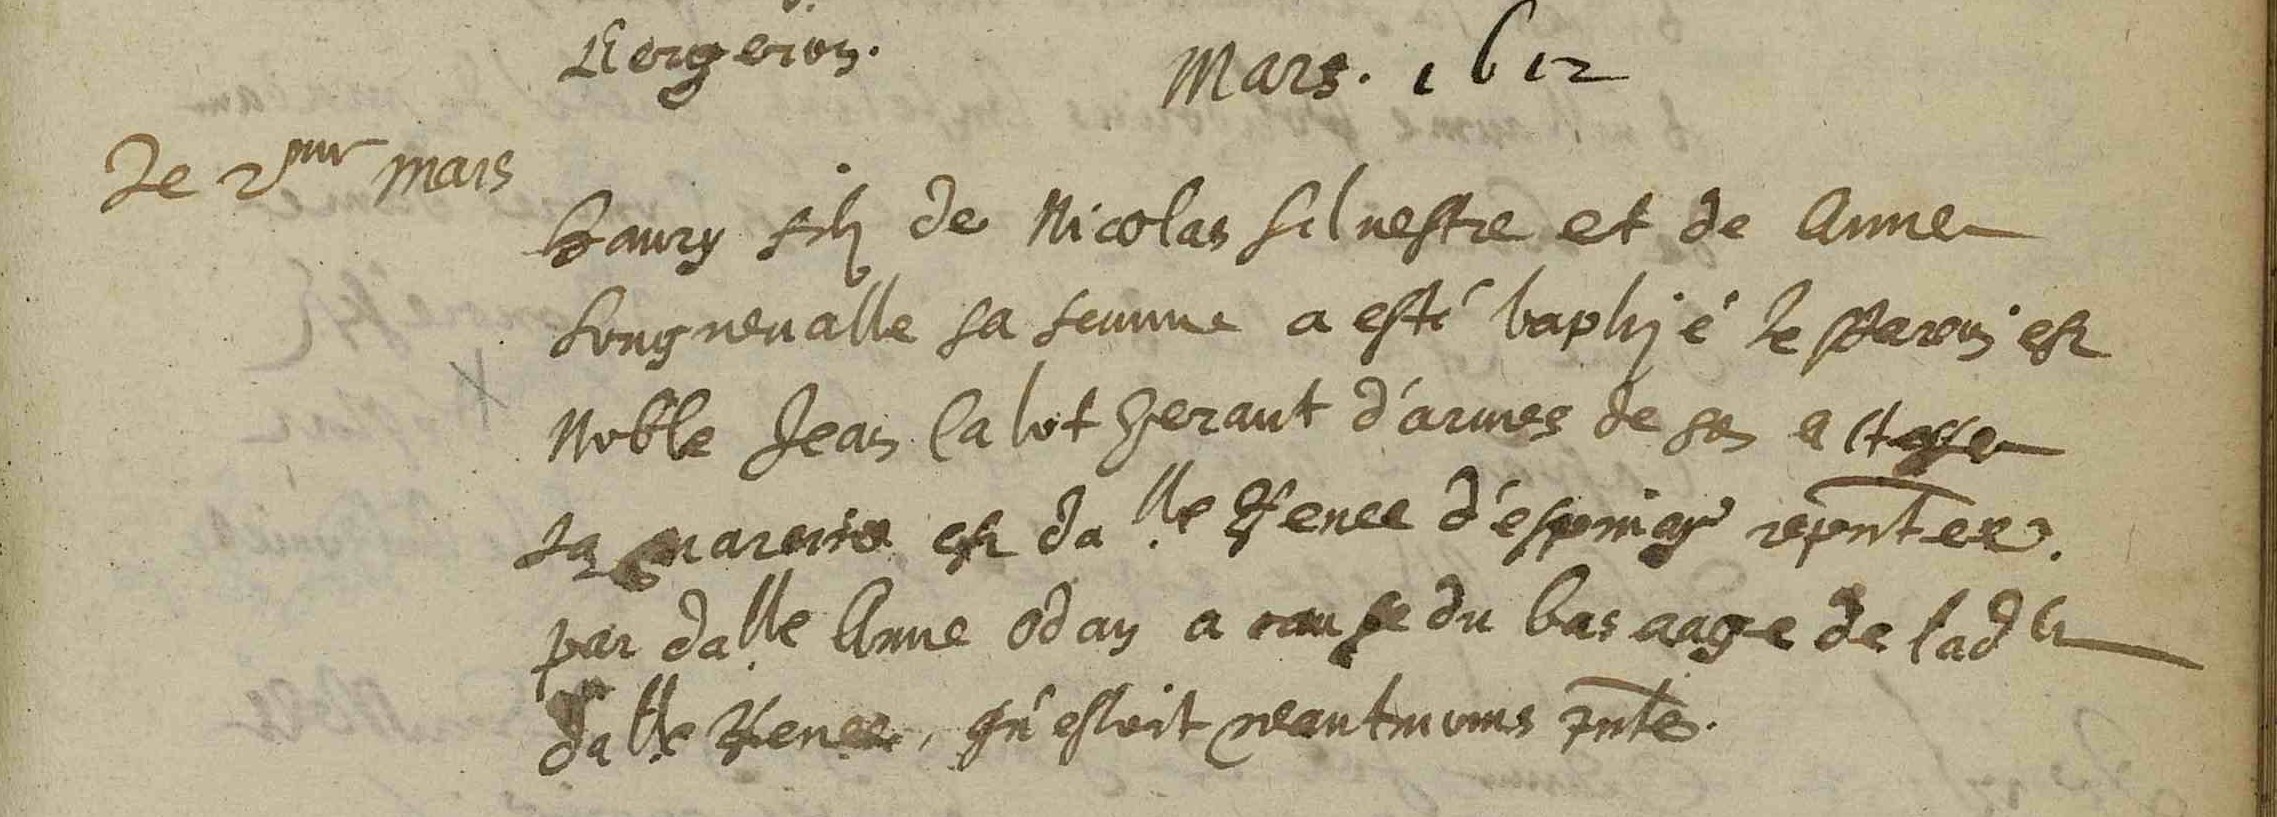 Mars. 1612
Le 2me mars
Hanry filz de Nicolas Silvestre et de Anne
Longnevalle sa femme a esté baptizé le parein est
Noble Jean Calot heraut d'armes de son altesse
La mareine est dalle Renee d'espinay repntee.
par dalle Anne odan a cause du bas aage de ladte
dalle Renee, qu'estoit neantmoins pnte.